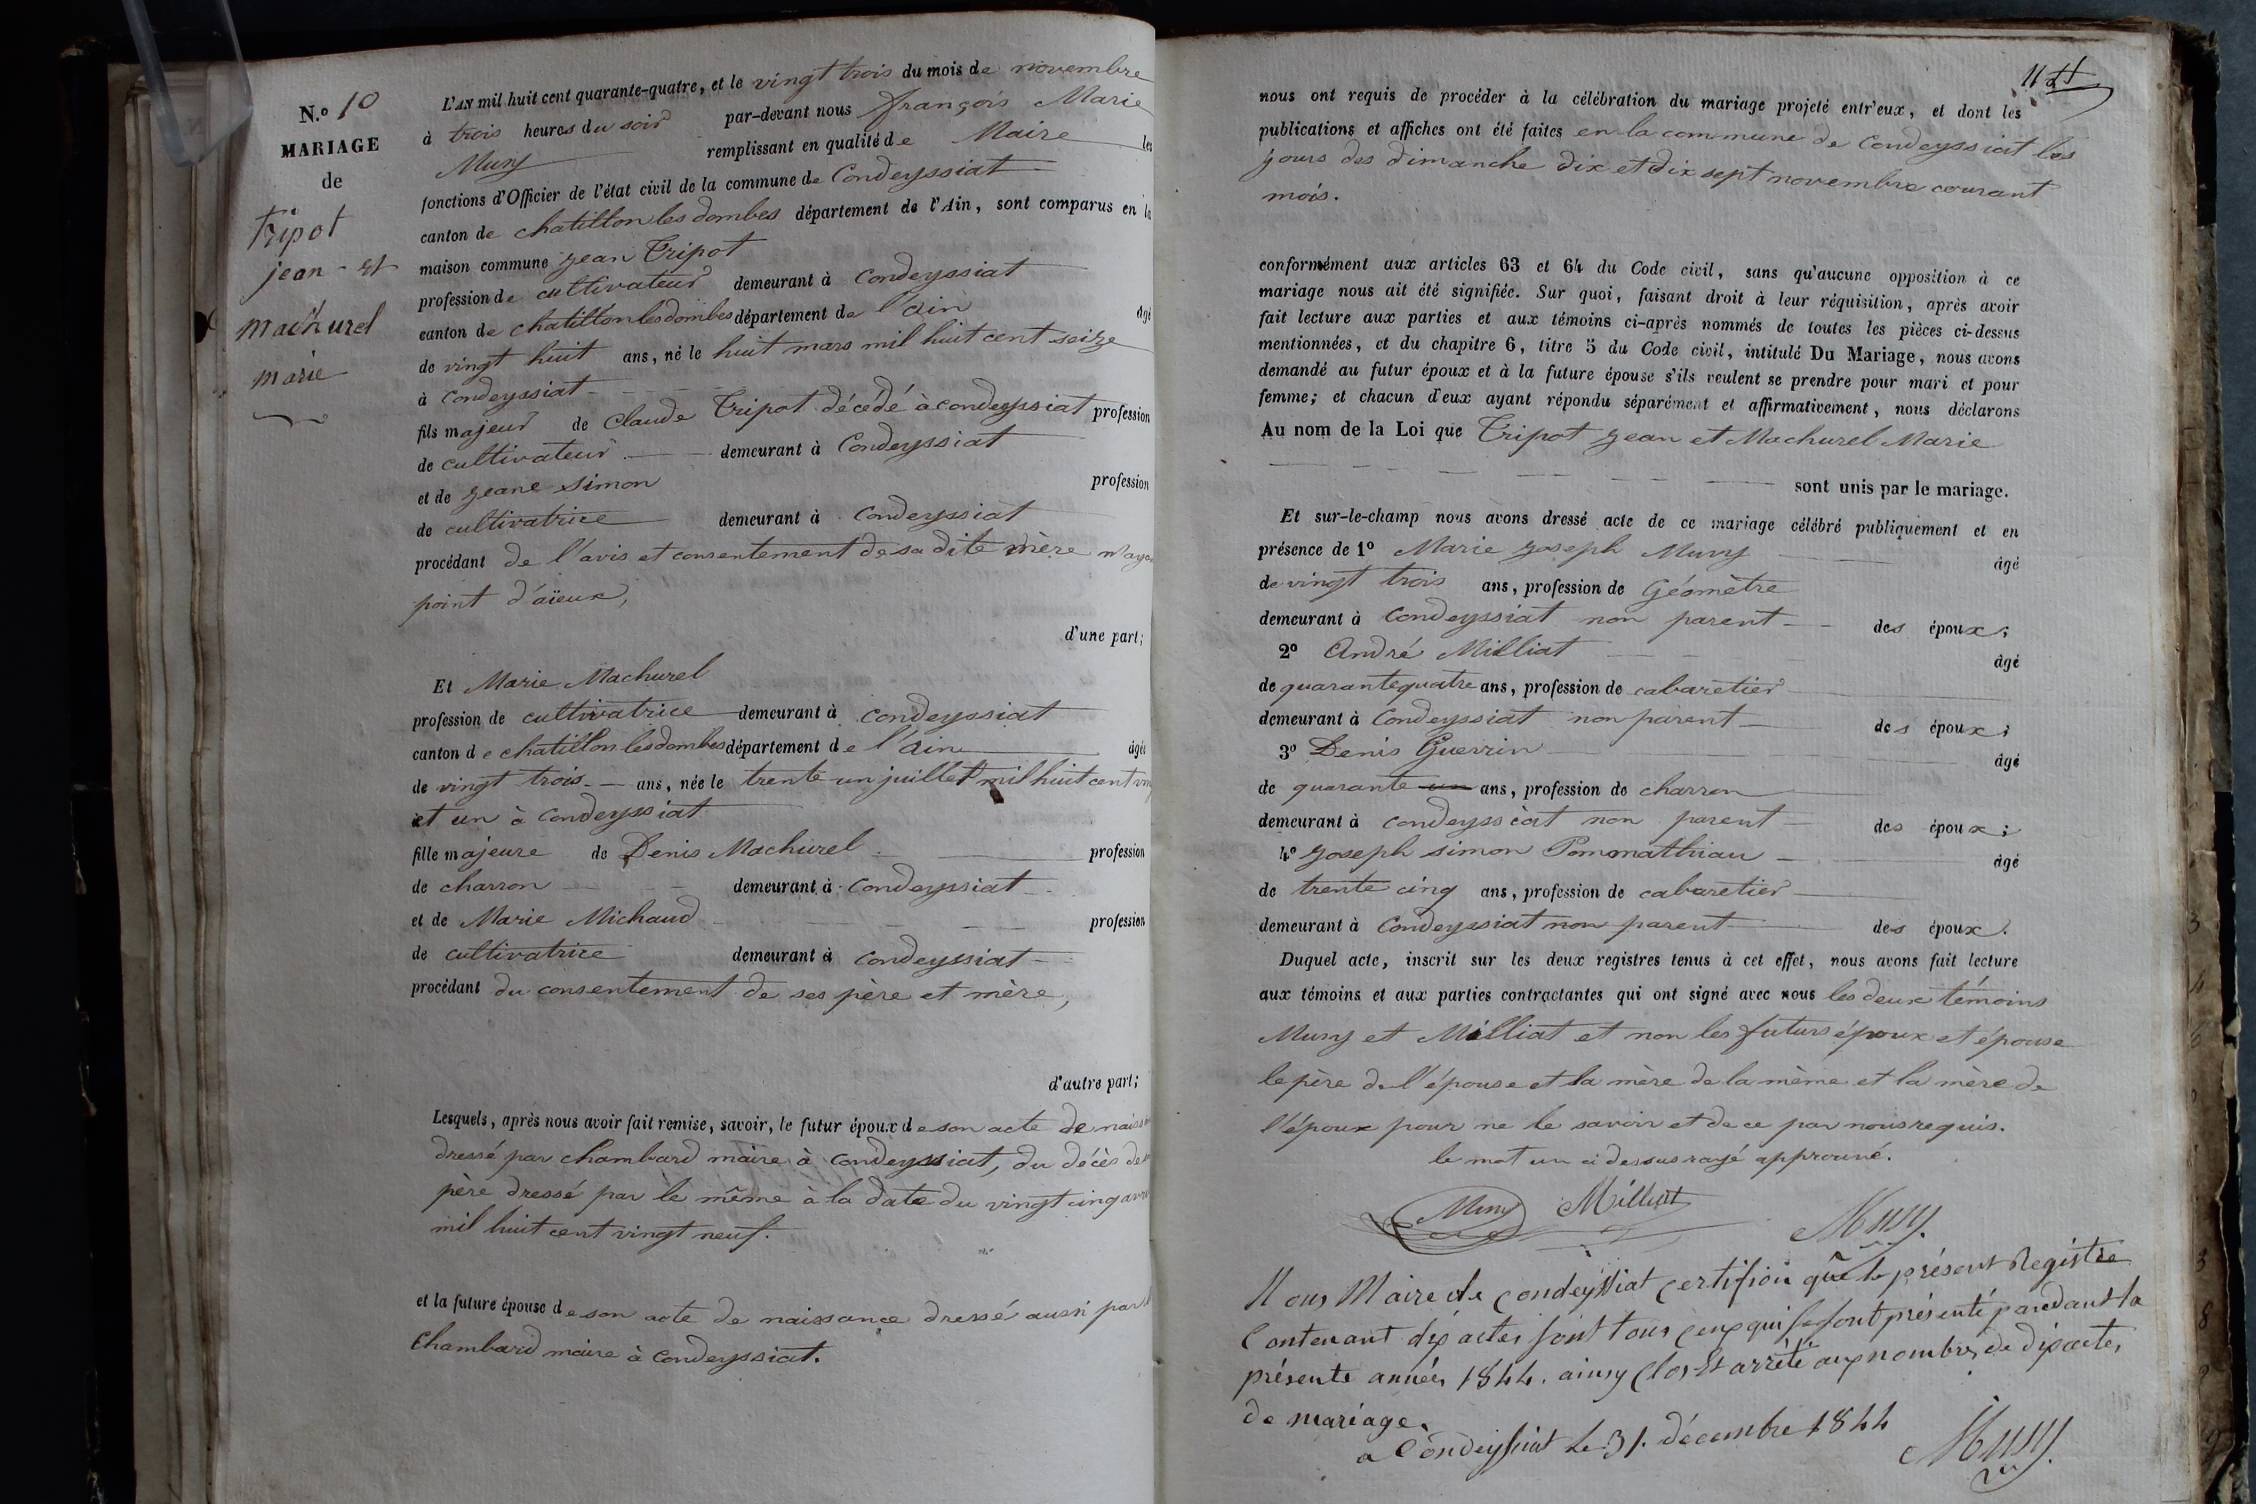 N.º 10
MARIAGE
de
Tripot
jean - et
machurel
marie
L'AN mil huit cent quarante-quatre, et le vingt trois du mois de novembre
à trois heures du soir par-devant nous françois Marie
Muny remplissant en qualité de Maire les
fonctions d'Officier de l'état civil de la commune de Condeyssiat
canton de chatillon les dombes département de l'Ain, sont comparus en la
maison commune jean Tripot
profession de cultivateur demeurant à Condeyssiat
canton de chatillon les dombes département de l'ain âgé
de vingt huit ans, né le huit mars mil huit cent seize
à Condeyssiat
fils majeur de Claude Tripot décédé à condeyssiat profession
de cultivateur demeurant à Condeyssiat
et de jeane simon profession
de cultivatrice demeurant à Condeyssiat
procédant de l'avis et consentement de sa dite mère
point d'aïeux,
d'une part;
Et Marie Machurel
profession de cultivatrice demeurant à Condeyssiat
canton de chatillon les dombes département de l'ain âgée
de vingt trois ans, née le trente un juillet mil huit cent
et un à Condeyssiat
fille majeure de Denis Machurel profession
de charron demeurant à Condeyssiat
et de Marie Michaud profession
de cultivatrice demeurant à Condeyssiat
procédant du consentement de ses père et mère,
d'autre part;
Lesquels, après nous avoir fait remise, savoir, le futur époux de son acte de
dressé par chambard maire à Condeyssiat, du décès de
père dressé par le même à la date du vingt cinq
mil huit cent vingt neuf.
et la future épouse de son acte de naissance dressé aussi par
Chambard maire à Condeyssiat.
11
nous ont requis de procéder à la célébration du mariage projeté entr'eux, et dont les
publications et affiches ont été faites en la commune de Condeyssiat les
jours des dimanche dix et dix sept novembre courant
mois.
conformément aux articles 63 et 64 du Code civil, sans qu'aucune opposition à ce
mariage nous ait été signifiée. Sur quoi, faisant droit à leur réquisition, après avoir
fait lecture aux parties et aux témoins ci-après nommés de toutes les pièces ci-dessus
mentionnées, et du chapitre 6, titre 5 du Code civil, intitulé Du Mariage, nous avons
demandé au futur époux et à la future épouse s'ils veulent se prendre pour mari et pour
femme; et chacun d'eux ayant répondu séparément et affirmativement, nous déclarons
Au nom de la Loi que Tripot jean et Machurel Marie
sont unis par le mariage.
Et sur-le-champ nous avons dressé acte de ce mariage célébré publiquement et en
présence de 1º Marie joseph Muny âgé
de vingt trois ans, profession de Géomètre
demeurant à Condeyssiat non parent des époux;
2º André Milliat âgé
de quarante quatre ans, profession de cabaretier
demeurant à Condeyssiat non parent des époux;
3º Denis Guerrin âgé
de quarante un ans, profession de charron
demeurant à condeyssiat non parent des époux;
4º joseph simon Pommathiau âgé
de trente cinq ans, profession de cabaretier
demeurant à Condeyssiat non parent des époux.
Duquel acte, inscrit sur les deux registres tenus à cet effet, nous avons fait lecture
aux témoins et aux parties contractantes qui ont signé avec nous les deux témoins
Muny et Milliat et non les futurs époux et épouse
le père de l'épouse et la mère de la même et la mère de
l'époux pour ne le savoir et de ce par nous requis.
le mot un ci dessus rayé approuvé.
Muny Milliat Muny
Nous Maire de Condeyssiat Certifion que le présent Registre
Contenant dix actes sont tous ceux qui se sont présenté pandant la
présente année 1844. ainsy Clos Et arrêté aux nombre de dix actes
de mariage.
a Condeyssiat le 31. décembre 1844
Muny